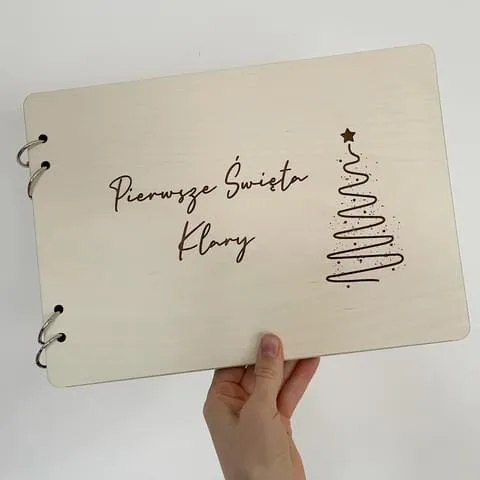 Pierwsze Święta
Klary